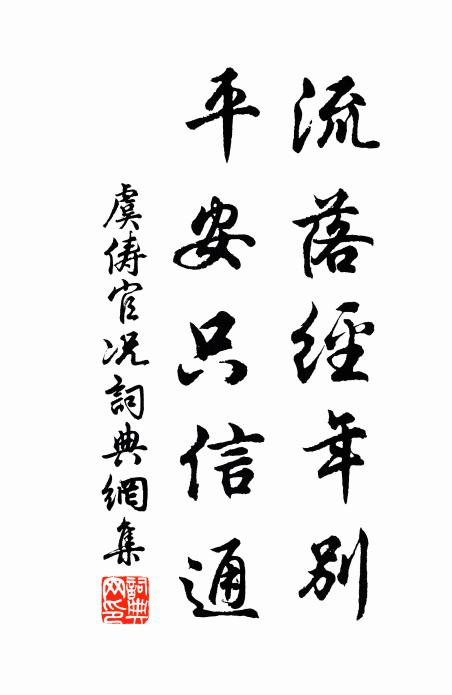 流落經年別
平安只信通
虞俦官况詞典網集
詞典網印